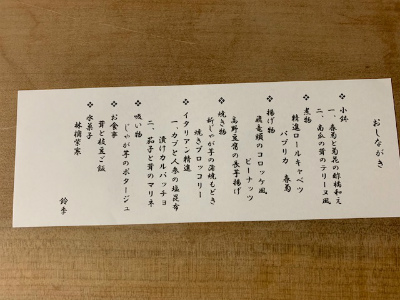 おしながき
❖小鉢
一、春菊と菊花の酢橘和え
二、南瓜の茸のテリーヌ風
❖煮物
精進ロールキャベツ
パプリカ 春菊
❖揚げ物
飛竜頭のコロッケ風
ピーナッツ
高野豆腐の長芋揚げ
❖焼き物
新じゃが芋の蒲焼もどき
焼きブロッコリー
❖イタリアン精進
一、カブと人参の塩昆布
漬けカルパッチョ
二、茄子と茸のマリネ
❖吸い物
じゃが芋のポタージュ
❖お食事
茸と枝豆ご飯
❖水菓子
林檎羹